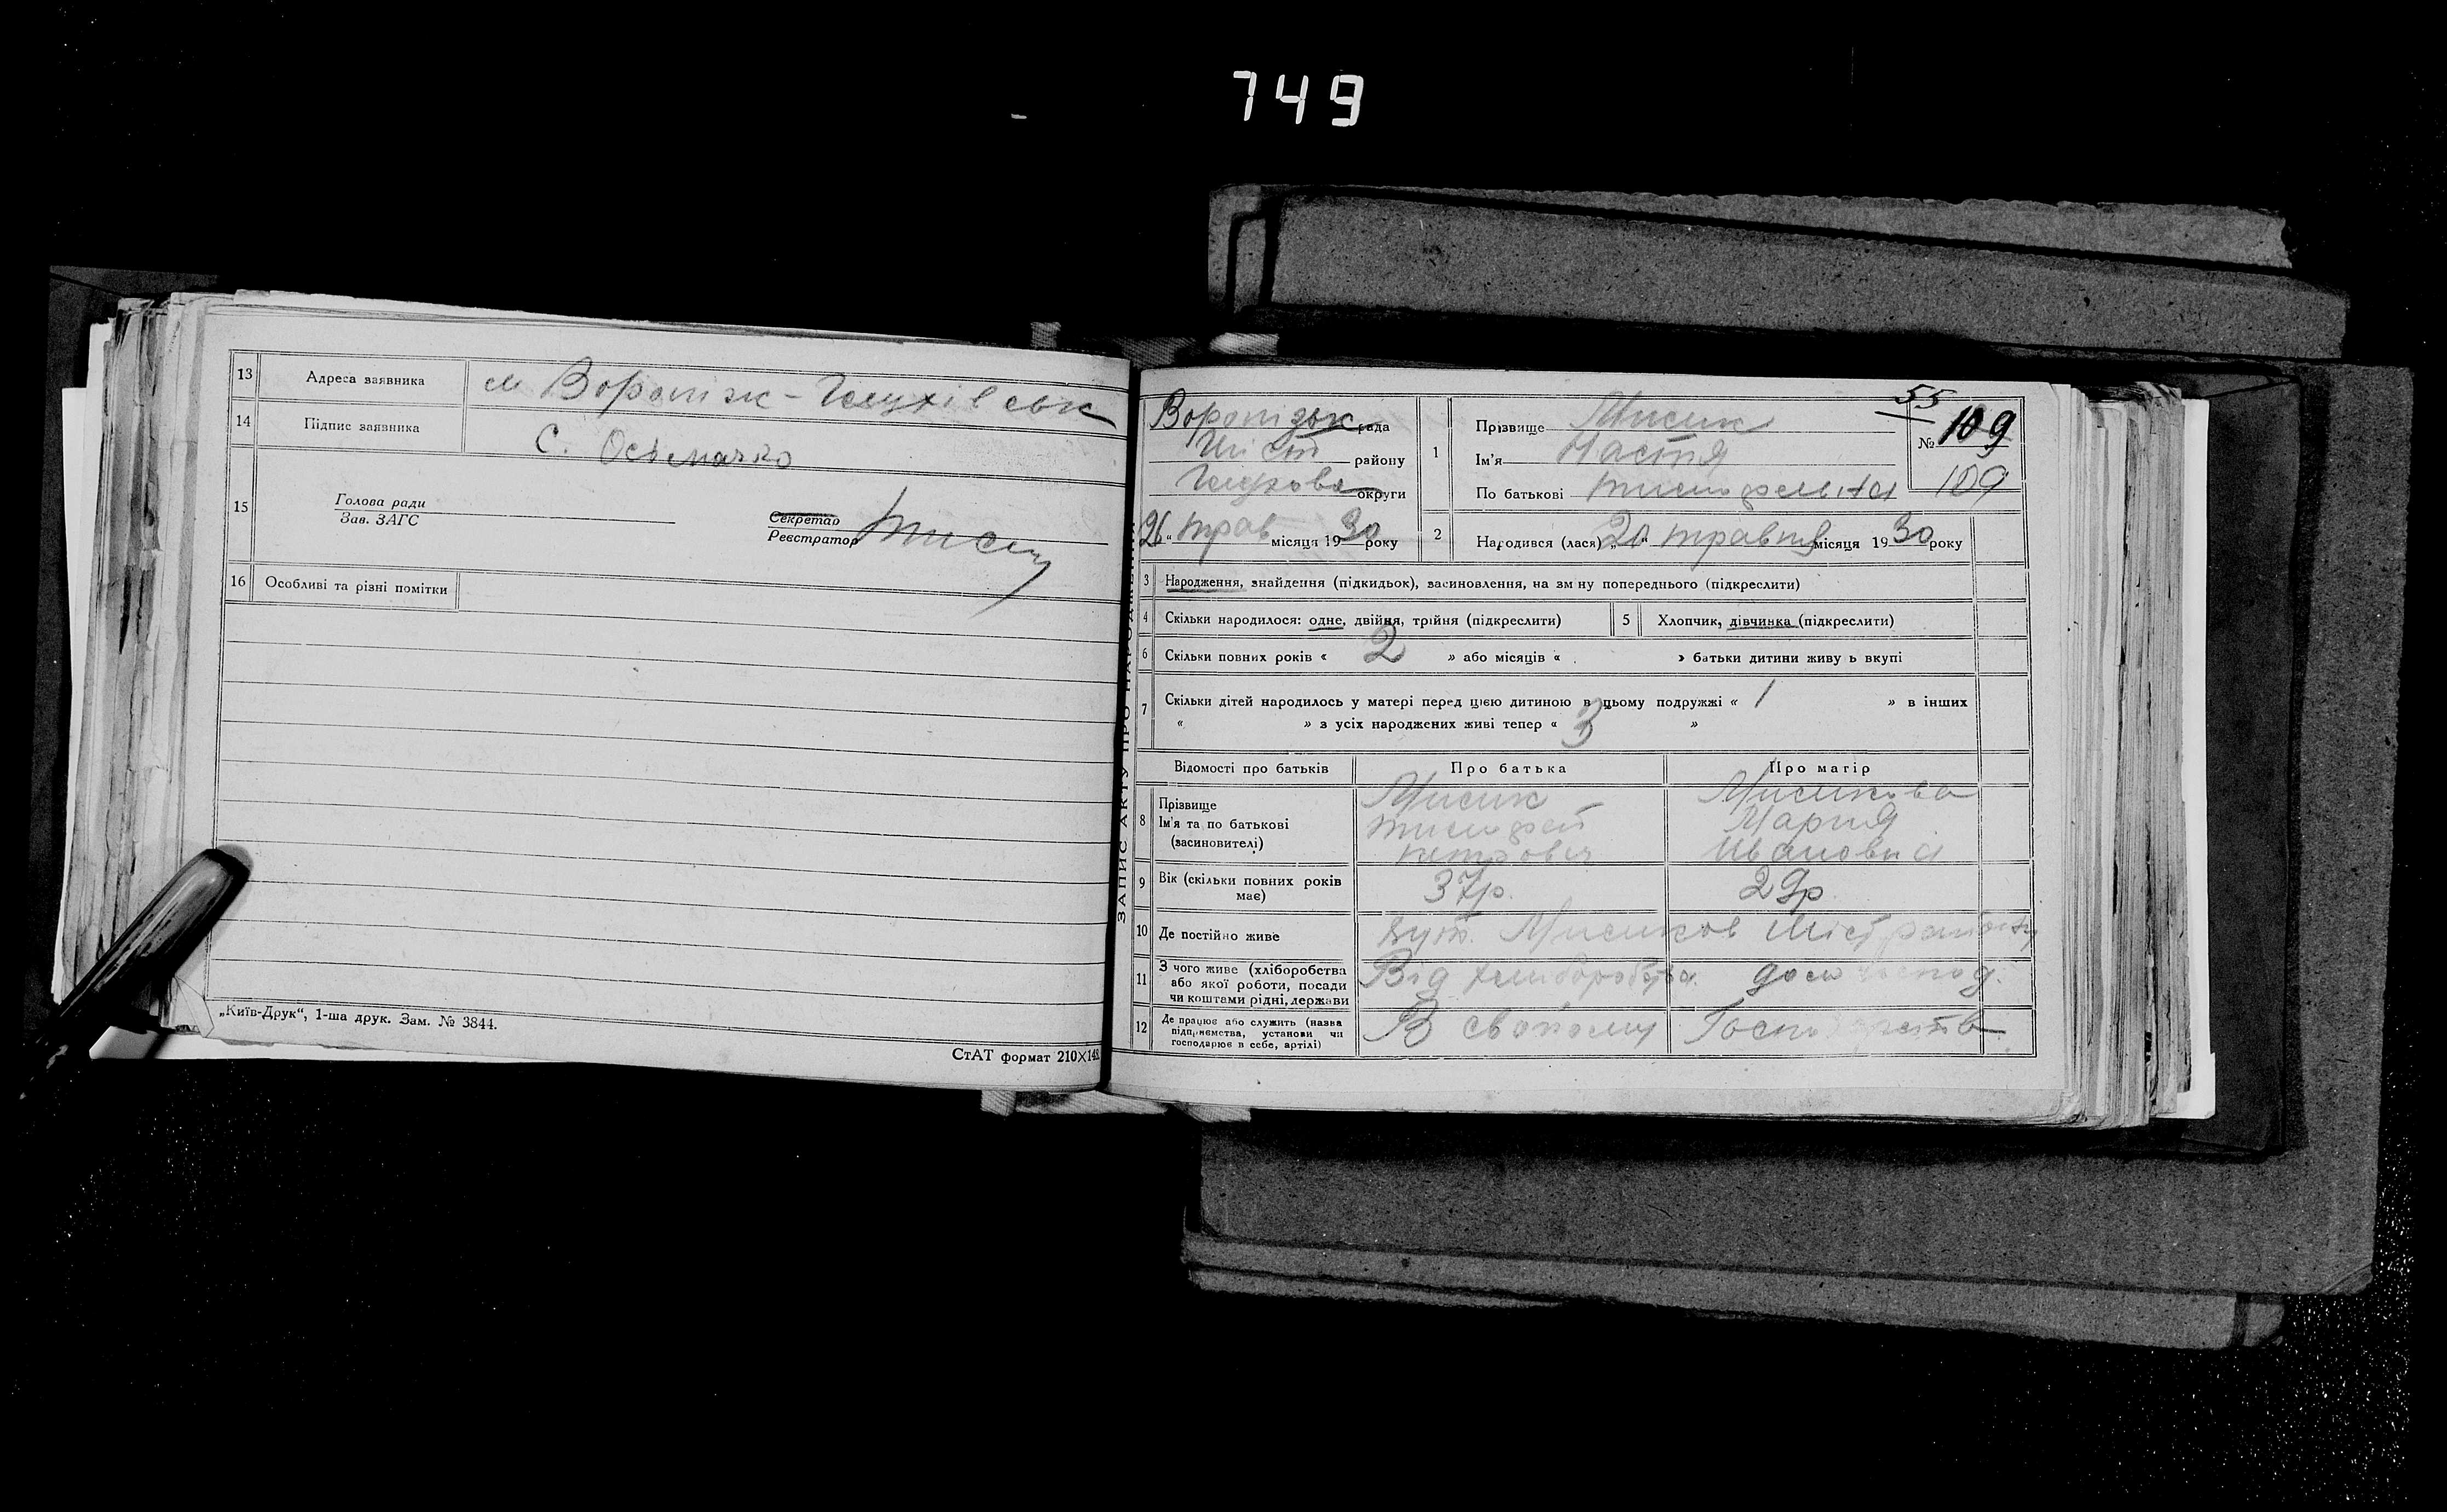 749
13 Адреса заявника м Вороніж - Глухівськ
14 Підпис заявника С. Осьмачко
15 Голова ради
Зав. ЗАГС
Секретар
Реєстратор
16 Особливі та різні помітки
„Київ-Друк“, 1-ша друк. Зам. № 3844.
СтАТ формат 210×148
ЗАПИС АКТУ ПРО НАРОДЖЕННЯ
Воронізьк рада
Шіст району
Глухова округи
26 “ трав місяця 1930 року
55
№ 109
109
1 Прізвище Мисик
Ім'я Настя
По батькові Тимофеївна
2 Народився (лася) „ “ травня місяця 1930 року
3 Народження, знайдення (підкидьок), засиновлення, на зміну попереднього (підкреслити)
4 Скільки народилося: одне, двійня, трійня (підкреслити) 5 Хлопчик, дівчинка (підкреслити)
6 Скільки повних років « 2 » або місяців « » батьки дитини живуть вкупі
7 Скільки дітей народилось у матері перед цією дитиною в цьому подружжі « 1 » в інших
« » з усіх народжених живі тепер « 3 »
Відомості про батьків Про батька Про матір
8 Прізвище Мисик Мисикова
Ім'я та по батькові Тимофей Мария
(засиновителі) Петрович Ивановна
9 Вік (скільки повних років має) 37р. 29р.
10 Де постійно живе хут. Мисиков Шіст району
11 З чого живе (хліборобства Від хліборобства. дом господ.
або якої роботи, посади
чи коштами рідні, держави
12 Де працює або служить (назва В свойому Госп
підприємства, установи чи
господарює в себе, артілі)